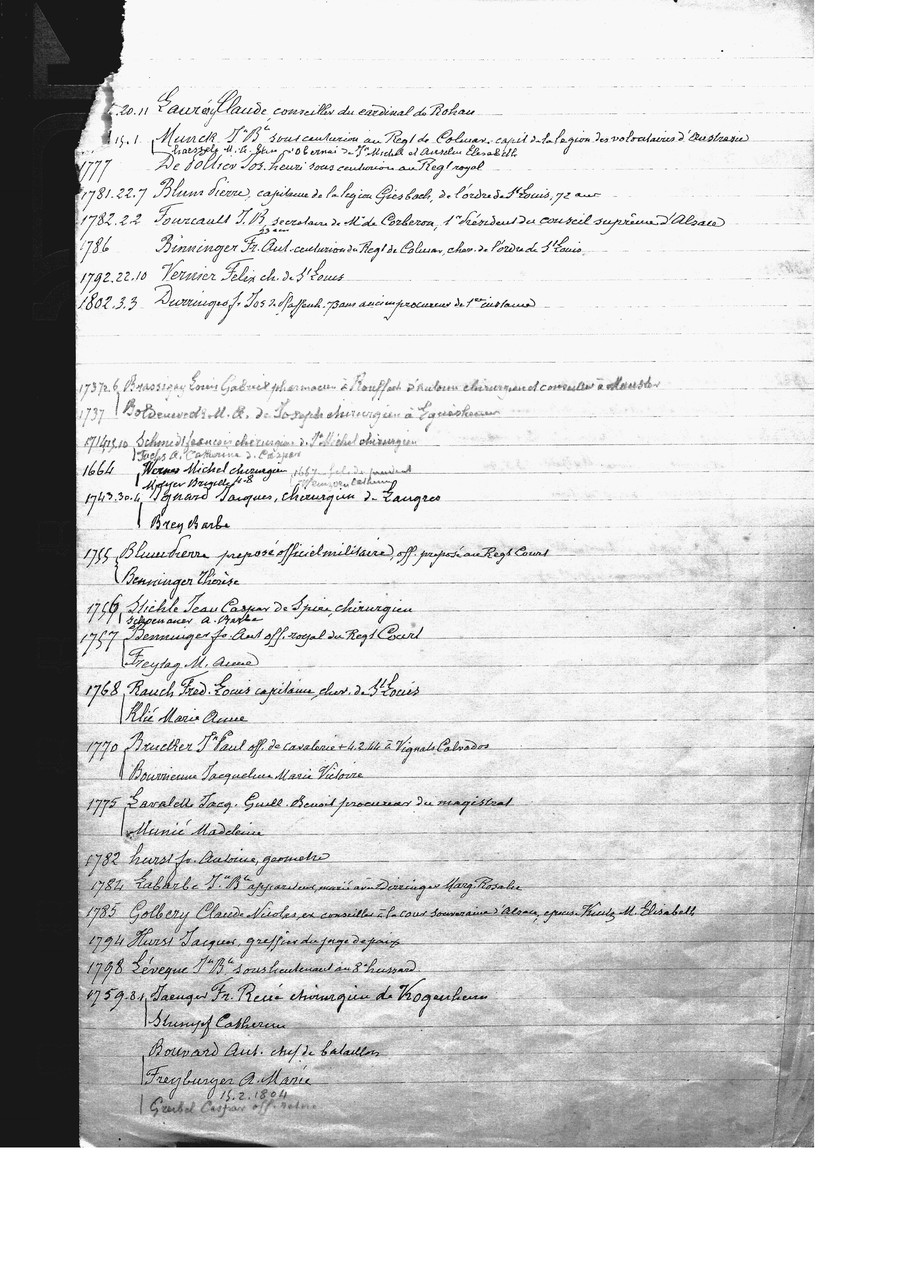 .20.11 Claude conseiller du cardinal de Rohan
15.1. Munck Jn Bte sous centurion au Regt de Colmar, capit de la legion des volontaires d'Austrasie
M. A. d'Obernai de Jn Michel et Anselm Elisabeth
1777 De Jos. henri sous centurion au Regt royal
1781.22.7 Blum Pierre, capitaine de la legion Giesbach, de l'ordre de St Louis, 72 ans
1782.2.2 Fourcault J. B. secretaire de Mr de Corberon, 1er Président du conseil suprême d'Alsace
1786 Binninger Fr. Ant. centurion du Regt de Colmar, chev. de l'ordre de St Louis
1792.22.10 Vernier Felix ch. de St Louis
1802.3.3 Durringer f. Jos. 73 ans ancien procureur de 1ere instance
1737 Louis Gabriel pharmacien à Rouffach d'autour chirurgien et conseiller à Munster
1737 M. A. de Joseph chirurgien à Eguisheim
Schmidt francois chirurgien de Jn Michel chirurgien
Fuchs A. Catherine d. Caspar
1664 Werner Michel chirurgien
Meyer Brigide 4-8
1743.30.4 Ignard Jacques, chirurgien de Langres
Brey Barbe
1755 Blum Pierre preposé official militaire, off. proposé au Regt Court
Benninger Thérèse
1756 Stichle Jean Caspar de Spire, chirurgien
A. Barbe
1757 Benninger fr. Ant off. royal du Regt Court
Freytag M. Anne
1768 Rauch Fred. Louis capitaine, chev. de St Louis
Klié Marie Anne
1770 Bruckler Jn Paul off. de cavalerie + 4.2.44 à Vignats Calvados
Bourrienne Jacqueline Marie Victoire
1775 Lavalette Jacq. Guill. Benoit procureur du magistrat
Munié Madeleine
1782 hurst fr. Antoine, geometre
1784 Labarbe Jn Bte appariteur, marié avec Dirringer Marg. Rosalie
1785 Golbery Claude Nicolas, ex conseiller à la cour souveraine d'Alsace, epouse Kuntz M. Elisabeth
1794 Hurst Jacques, greffier du juge de paix
1798 Léveque Jn Bte, souslieutenant au 8e hussard
1759.8.1 Jaenger Fr. René chirurgien de Kogenheim
Stumpf Catherine
Bouvard Ant. chef de bataillon
Freyburger A. Marie
15.2.1804
Greibel Caspar off.